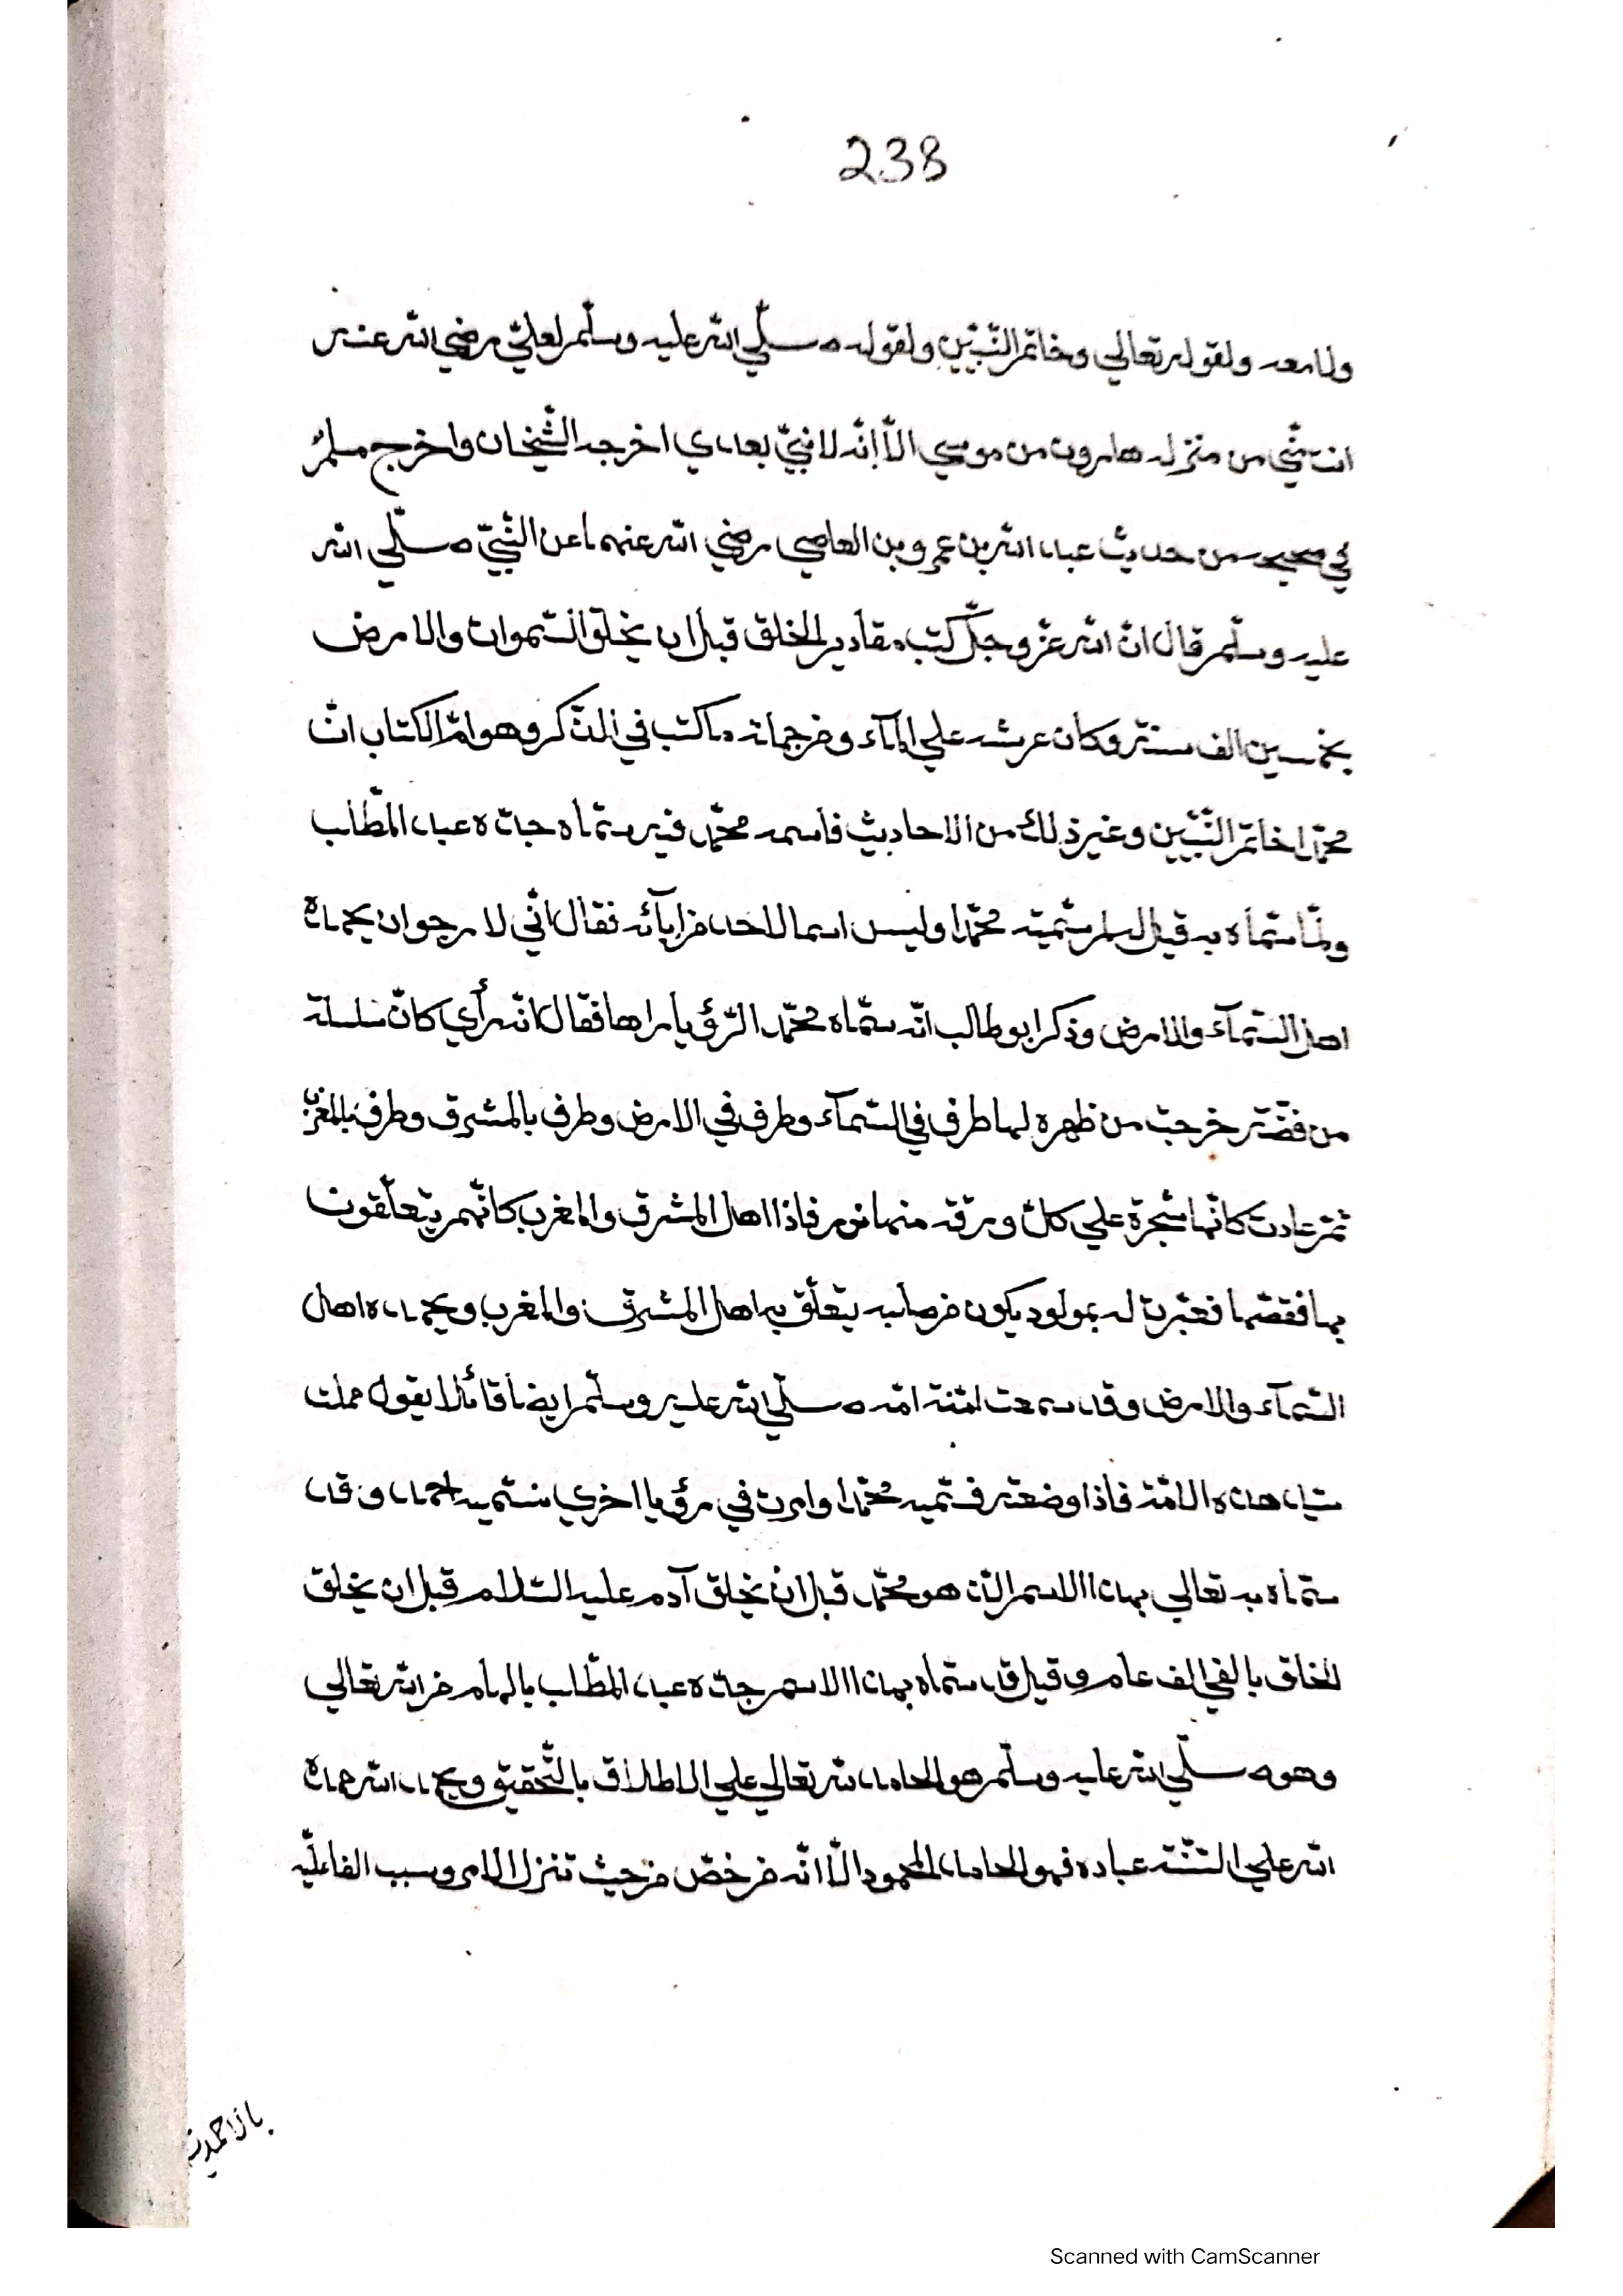 238
ولا معه ولقوله تعالي وخاتم النّبيّين ولقوله صلّي الله عليه وسلّم لعليّ رضي الله عنه
انت منّي من منزله هارون من موسي الاّ انّه لا نبيّ بعدي اخرجه الشّيخان واخرج مسلم
في صحيحه من حديث عبد الله بن عمرو بن العاصي رضي الله عنهما عن النّبيّ صلّي الله
عليه وسلّم قال انّ الله عزّ وجلّ كتب مقادير الخلق قبل ان يخلق السّموات والارض
بخمسين الف سنة وكان عرشه علي المآء ومن جملة ما كتب في الذّكر وهو امّ الكتاب انّ
محمّدا خاتم النّبيّين وغير ذلك من الاحاديث فاسمه محمّد فيه سمّاه جدّه عبد المطّلب
ولمّا سمّاه به قيل له لم سمّيته محمّدا وليس اسما لاحد من آبآئه فقال انّي لا رجوان يحمده
اهل السّمآء والارض وذكر ابو طالب انّه سمّاه محمّد الرّؤيا راها فقال كانّه رأي كانّ سلسلة
من فضّة خرجت من ظهره لها طرف في السّمآء وطرف في الارض وطرف بالمشرق وطرف بالمغرب
ثمّ عادت كانّها شجرة علي كلّ ورقة منها نور فاذا اهل المشرق والمغرب كانّهم يتعلّقون
بها فقصّها فعبّرت له بمولود يكون من صلبه يتعلّق به اهل المشرق والمغرب ويحمده اهل
السّمآء والارض وقد سمعت امنة امّه صلّي الله عليه وسلّم ايضا قائلا يقول حملت
سيّد هذه الامّة فاذا وضعته فسمّيه محمّدا وامرت في رؤيا اخري ستسميه احمد وقد
سمّاه به تعالي بهذا الاسم الّذ هو محمّد قبل ان يخلق آدم عليه السّلام قبل ان يخلق
الخلق بالفي الف عام وقيل قد سمّاه بهذا الاسم جدّه عبد المطّلب بالهام من الله تعالي
وهو صلّي الله عليه وسلّم هو الحامد لله تعالي علي الاطلاق بالتّحقيق ويحمد الله حمده
الله علي السّنة عباده فهو الحامد المحمود الاّ انّه من خصّ من حيث تنزل الامر وسبب الفاعليّة
بالاحمديّة
Scanned with CamScanner